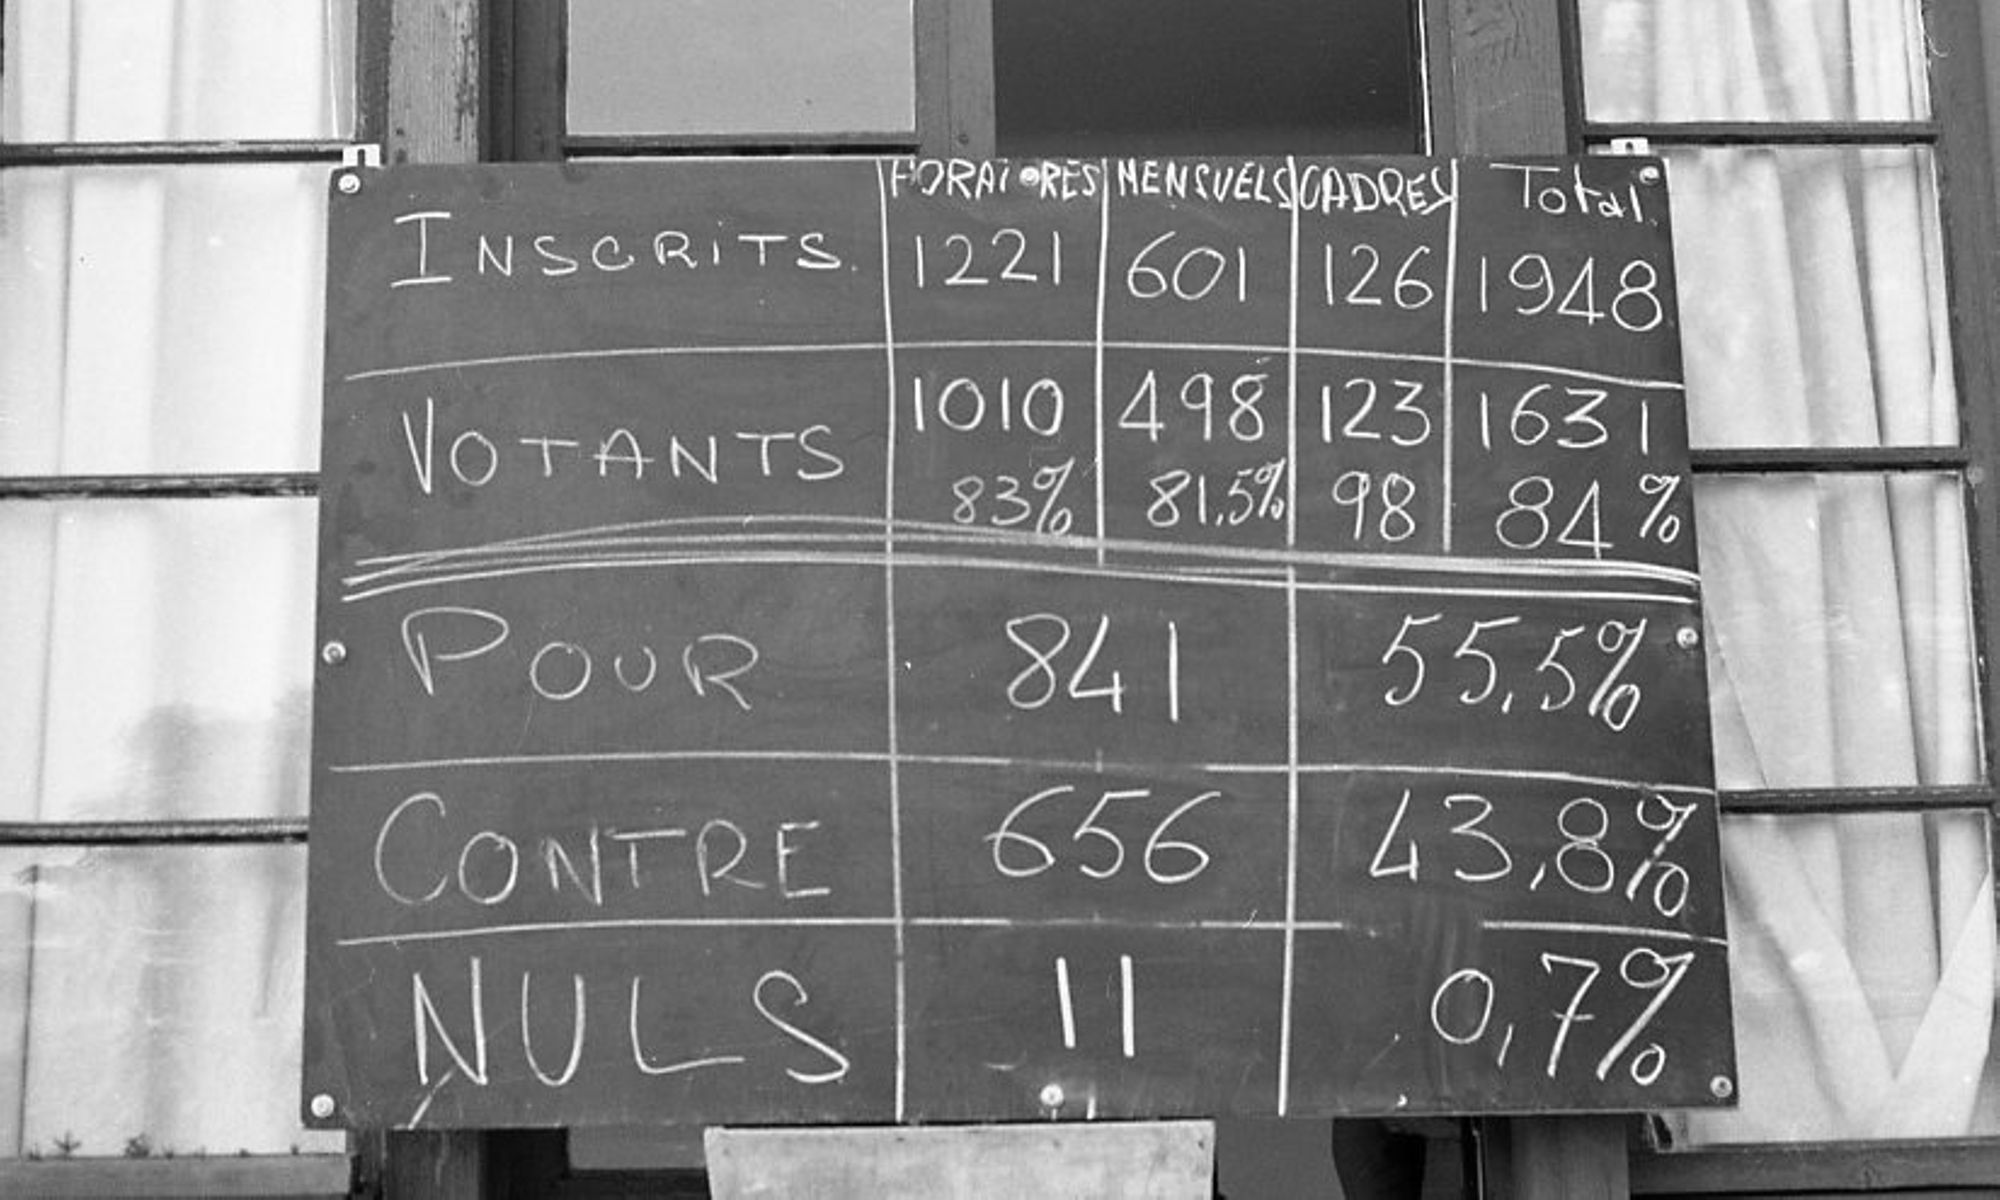 HORAIRES MENSUELS CADRES Total
INSCRITS. 1221 601 126 1948
VOTANTS 1010 498 123 1631
83% 81,5% 98 84%
POUR 841 55,5%
CONTRE 656 43,8%
NULS 11 0,7%